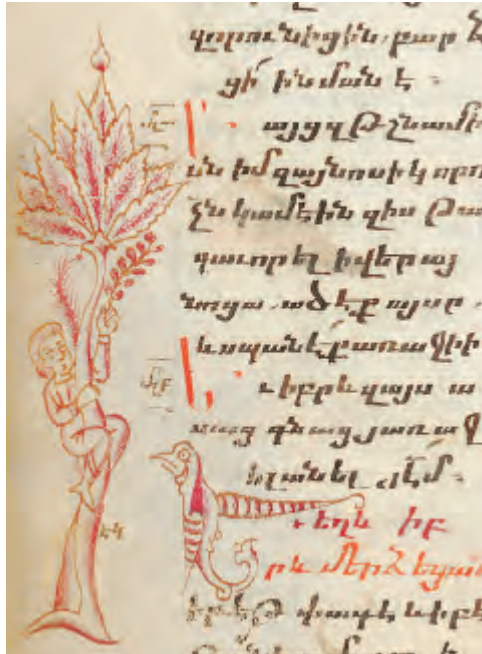 զոր ունիցին. բար
ցի ի նմանէ .
այց զթշնամի
սն իմ զայնոսիկ որո
չն կամէին զիս թա
գաւորել ի վերայ
նոցա. ածէք այսր .
և սպանէք առաջի ի
ւ իբրև զայս ա
սաց գնաց յառաջ
ելանել յէմ.
եղև իբ
րև մերձ եղան
ի բեթփագէ և ի բե